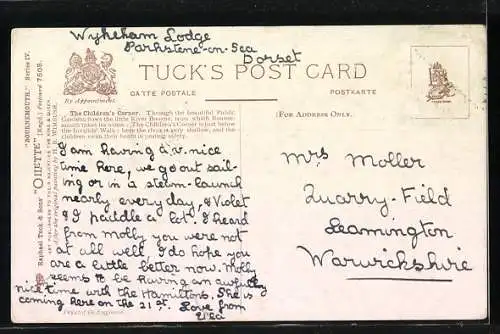 Wykeham Lodge
Parkstone-on-Sea
Dorset
TUCK'S POST CARD
By Appointment.
CARTE POSTALE
POSTKARTE
(FOR ADDRESS ONLY.
"BOURNEMOUTH." Series IV.
Raphael Tuck & Sons' "OILETTE" [Regd.] Postcard 7505.
The Children's Corner. Through the beautiful Public
Gardens flows the little River Bourne, near which Bourne-
mouth takes its name. The "Children's Corner" is just below
the Invalids' Walk; here the river is very shallow, and the
children swim their boats in perfect safety.
I am having a v. nice
time here, we go out sail-
ing or in a steam-launch
nearly every day, & Violet
& I paddle a lot. I heard
from Molly you were not
at all well I do hope you
are a little better now. Molly
seems to be having an awfully
nice time with the Hamiltons. She is
coming here on the 21st. Love from
Printed in England.
Mrs Moller
Quarry-Field
Leamington
Warwickshire